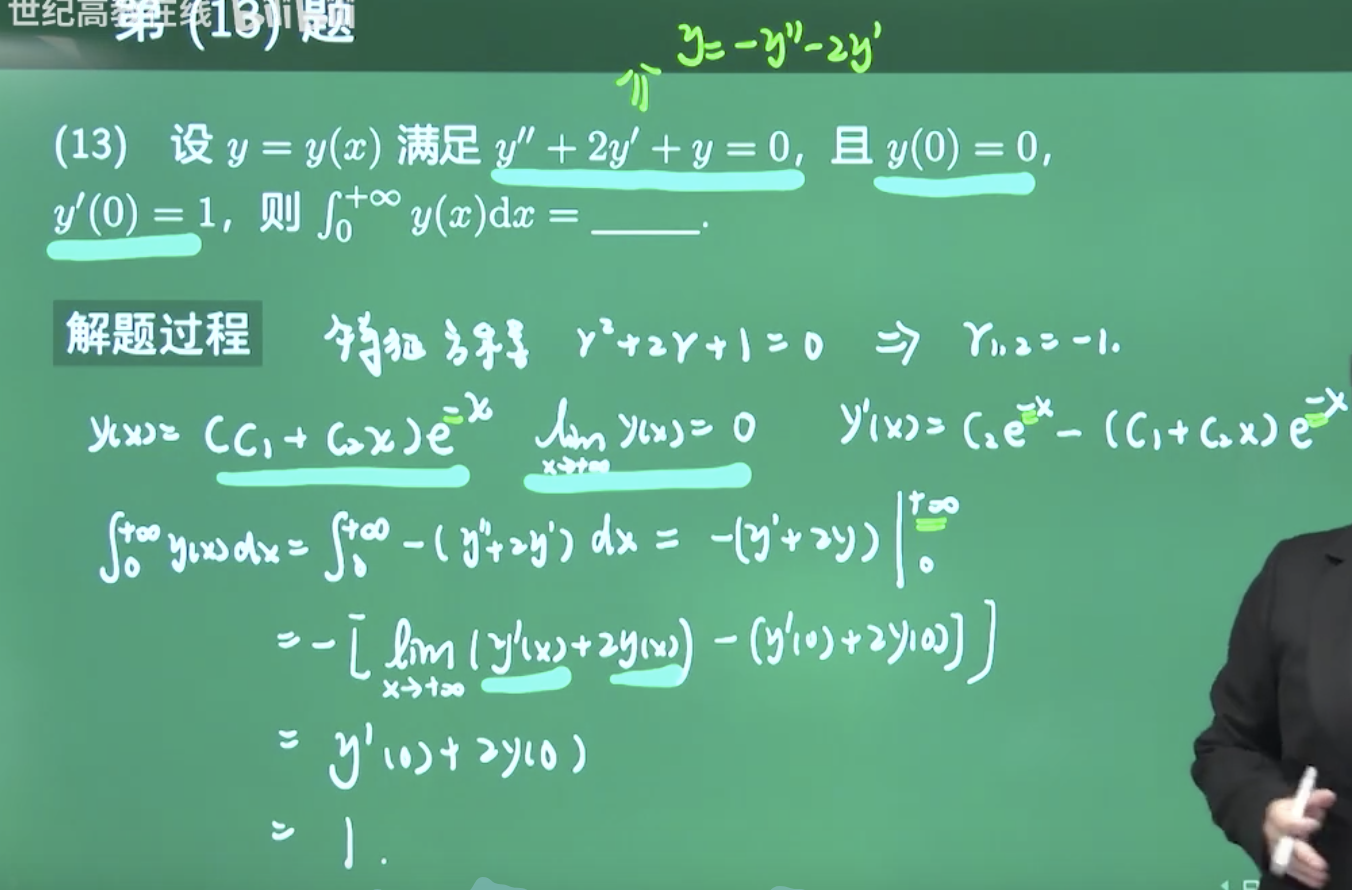 世纪高教在线 bilibili
第 (13) 题
y = -y'' - 2y'
⇑
(13) 设 y = y(x) 满足 y'' + 2y' + y = 0, 且 y(0) = 0,
y'(0) = 1, 则 ∫₀^{+∞} y(x)dx = ______.
解题过程 特征方程 r² + 2r + 1 = 0 ⇒ r₁,₂ = -1.
y(x) = (C₁ + C₂x)e^{-x} lim_{x→+∞} y(x) = 0 y'(x) = C₂e^{-x} - (C₁ + C₂x)e^{-x}
∫₀^{+∞} y(x)dx = ∫₀^{+∞} -(y'' + 2y') dx = -(y' + 2y) |₀^{+∞}
= -[ lim_{x→+∞} (y'(x) + 2y(x)) - (y'(0) + 2y(0)] ]
= y'(0) + 2y(0)
= 1.